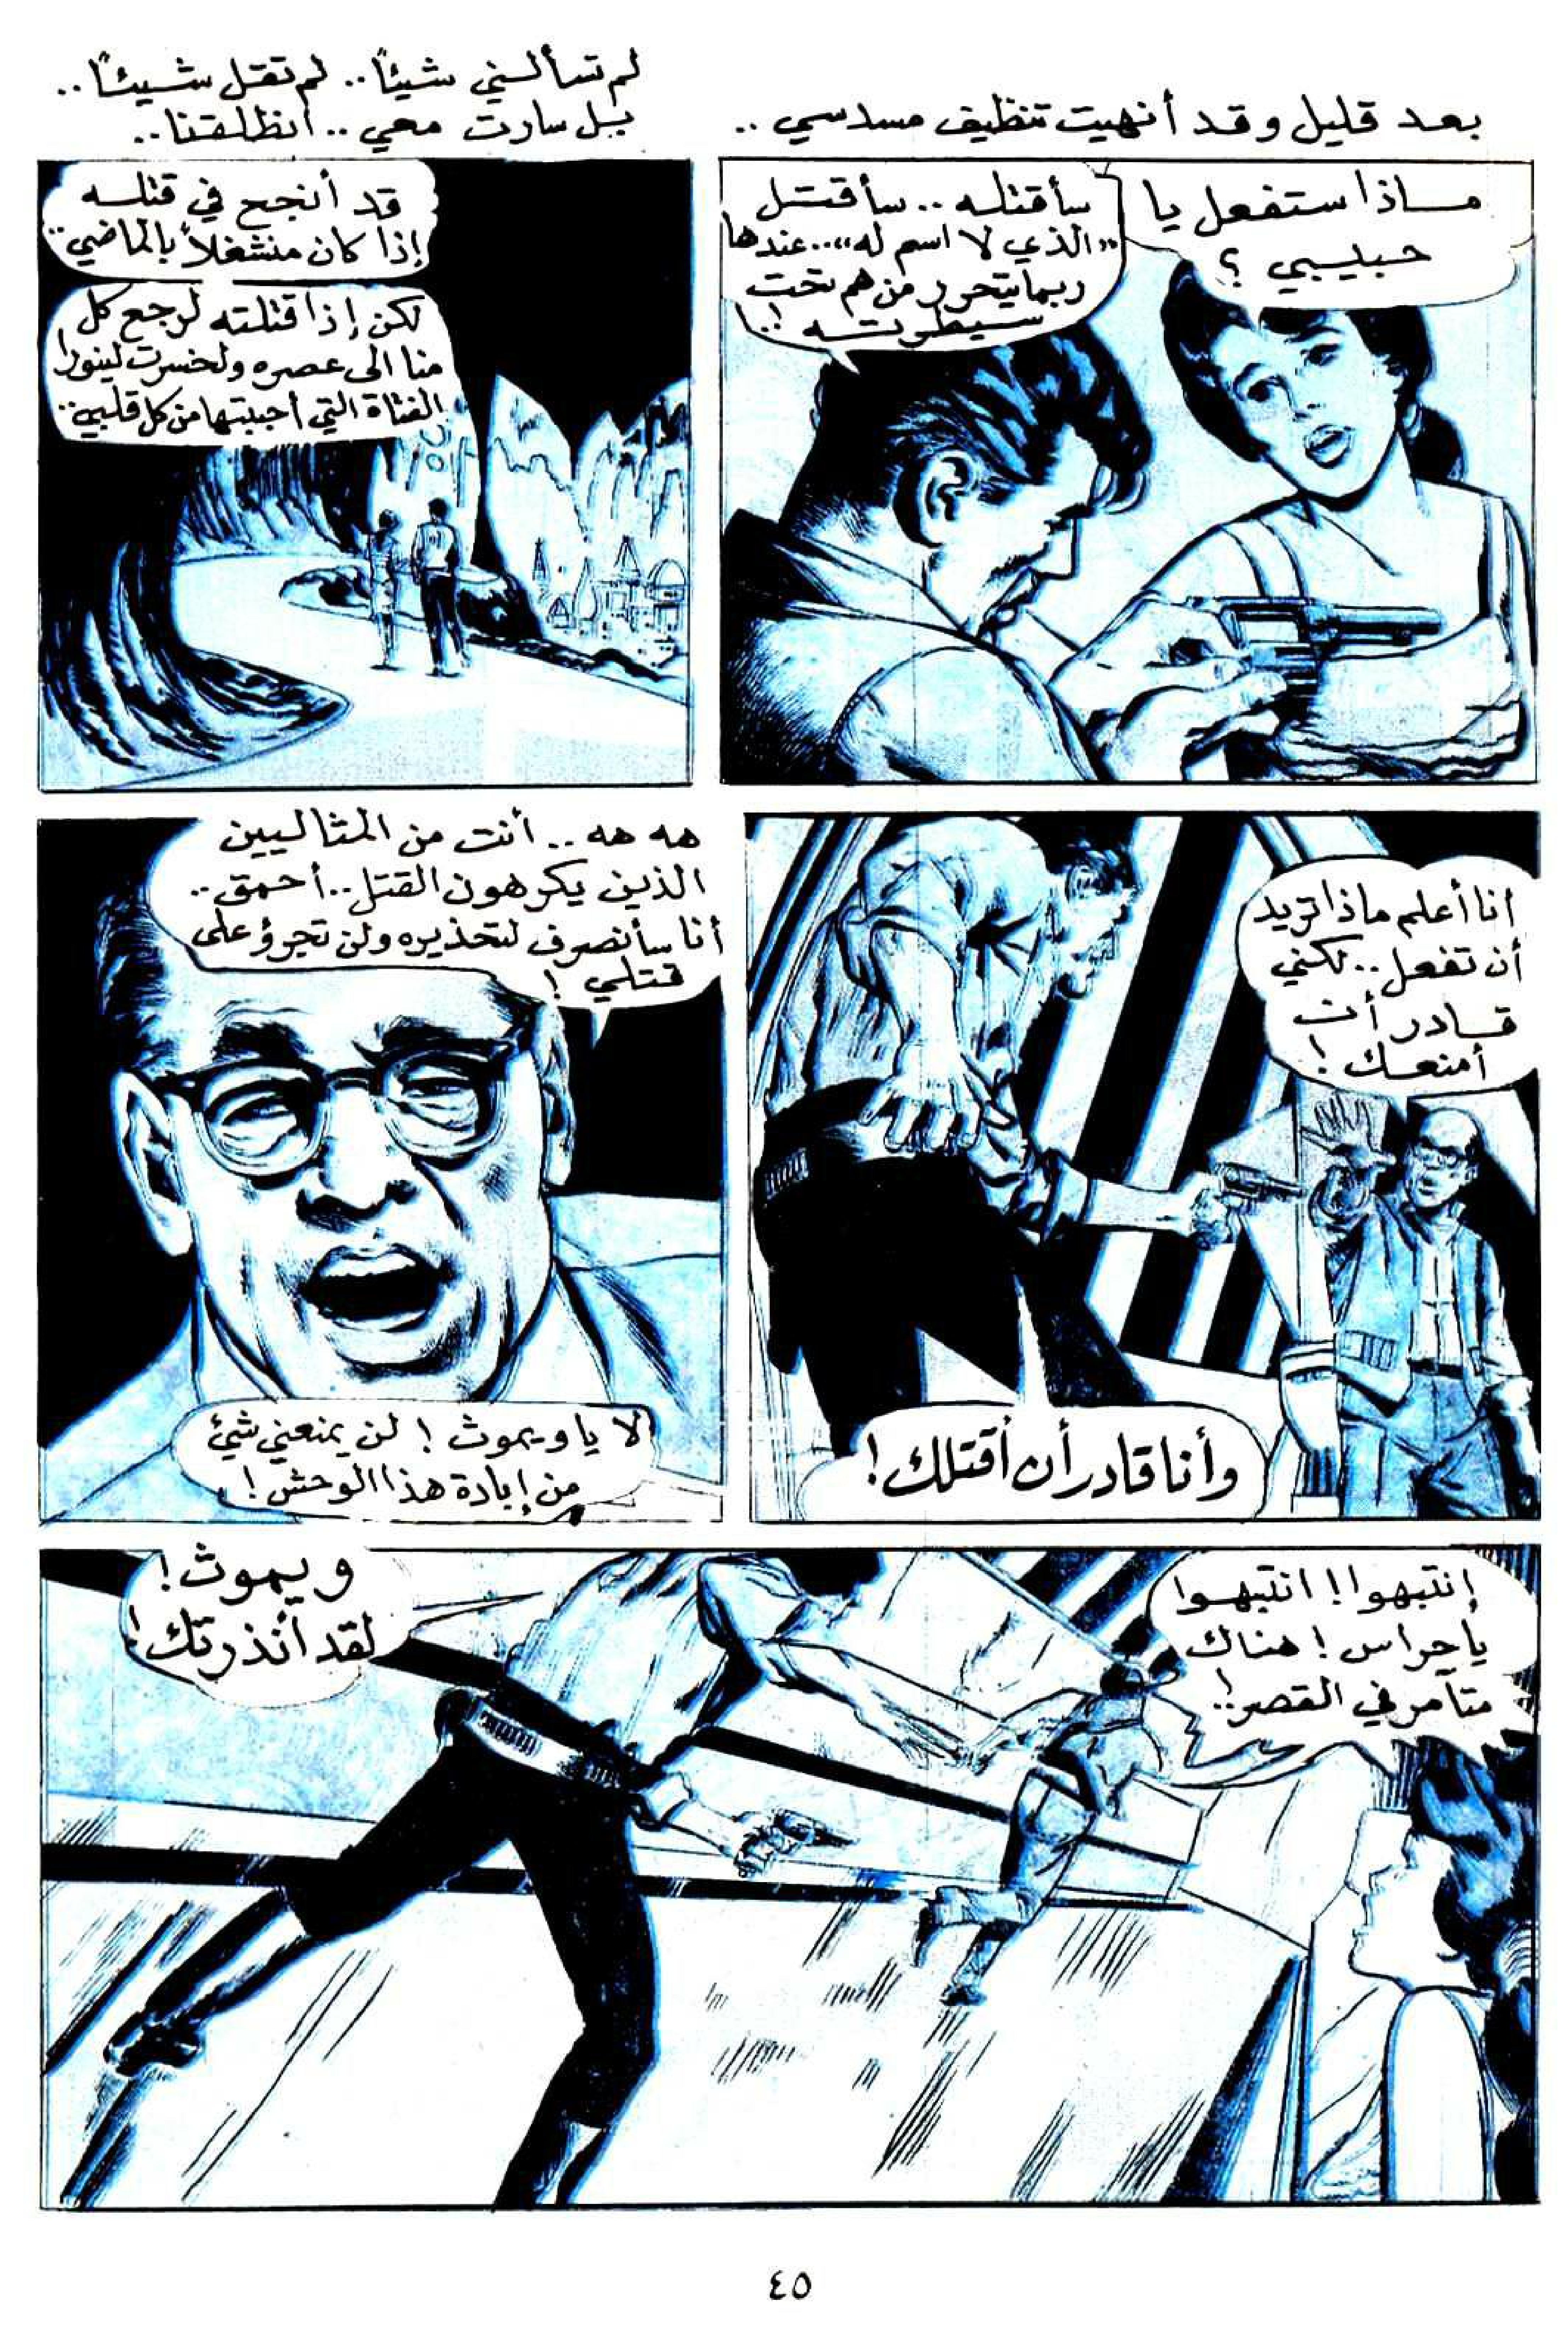 بعد قليل وقد أنهيت تنظيف مسدسي ..
ماذا ستفعل يا
حبيبي ؟
سأقتله .. سأقتل
«الذي لا اسم له»..عندها
ربما يتحرر من هم تحت
سيطرته !..
لم تسألني شيئاً.. لم تقل شيئاً..
بل سارت معي .. انطلقنا..
قد أنجح في قتله
إذا كان منشغلاً بالماضي..
لكن إذا قتلته لرجع كل
منا الى عصره ولخسرت لينورا
الفتاة التي أحببتها من كل قلبي..
أنا أعلم ماذا تريد
أن تفعل .. لكني
قادر أن
أمنعك !
وأنا قادر أن أقتلك !
هه هه .. أنت من المثاليين
الذين يكرهون القتل..أحمق..
أنا سأنصرف لتحذيره ولن تجرؤ على
قتلي !
لا يا ويموث ! لن يمنعني شئ
من إبادة هذا الوحش !
إنتبهوا ! انتبهوا
يا حراس ! هناك
متآمر في القصر !..
ويموث !
لقد أنذرتك !
٤٥